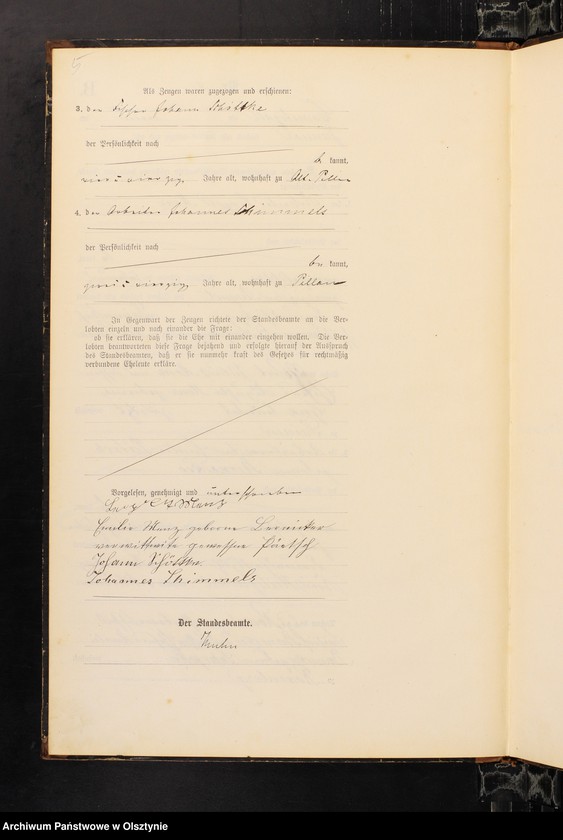 Als Zeugen waren zugezogen und erschienen:
3. der Fischer Johann Schöttke
der Persönlichkeit nach
be kannt,
vier u vierzig Jahre alt, wohnhaft zu Alt-Pillau
4. der Arbeiter Johannes Schimmels
der Persönlichkeit nach
be kannt,
zwei u vierzig Jahre alt, wohnhaft zu Pillau
In Gegenwart der Zeugen richtete der Standesbeamte an die Ver-
lobten einzeln und nach einander die Frage:
ob sie erklären, daß sie die Ehe mit einander eingehen wollen. Die Ver-
lobten beantworteten diese Frage bejahend und erfolgte hierauf der Ausspruch
des Standesbeamten, daß er sie nunmehr kraft des Gesetzes für rechtmäßig
verbundene Eheleute erkläre.
Vorgelesen, genehmigt und unterschrieben
Manz
Emilie Manz geborne
verwittwete gewesene
Johann Schöttke
Johannes Schimmels
Der Standesbeamte.
Archiwum Państwowe w Olsztynie